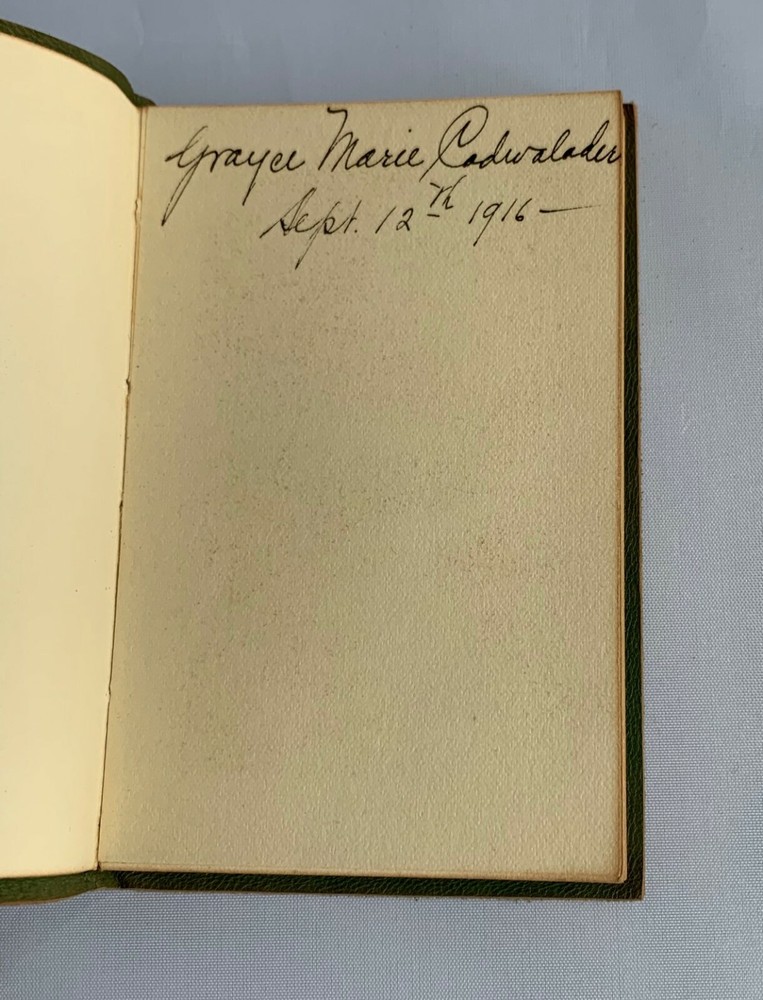 Grayce Marie Cadwalader
Sept. 12th 1916 —